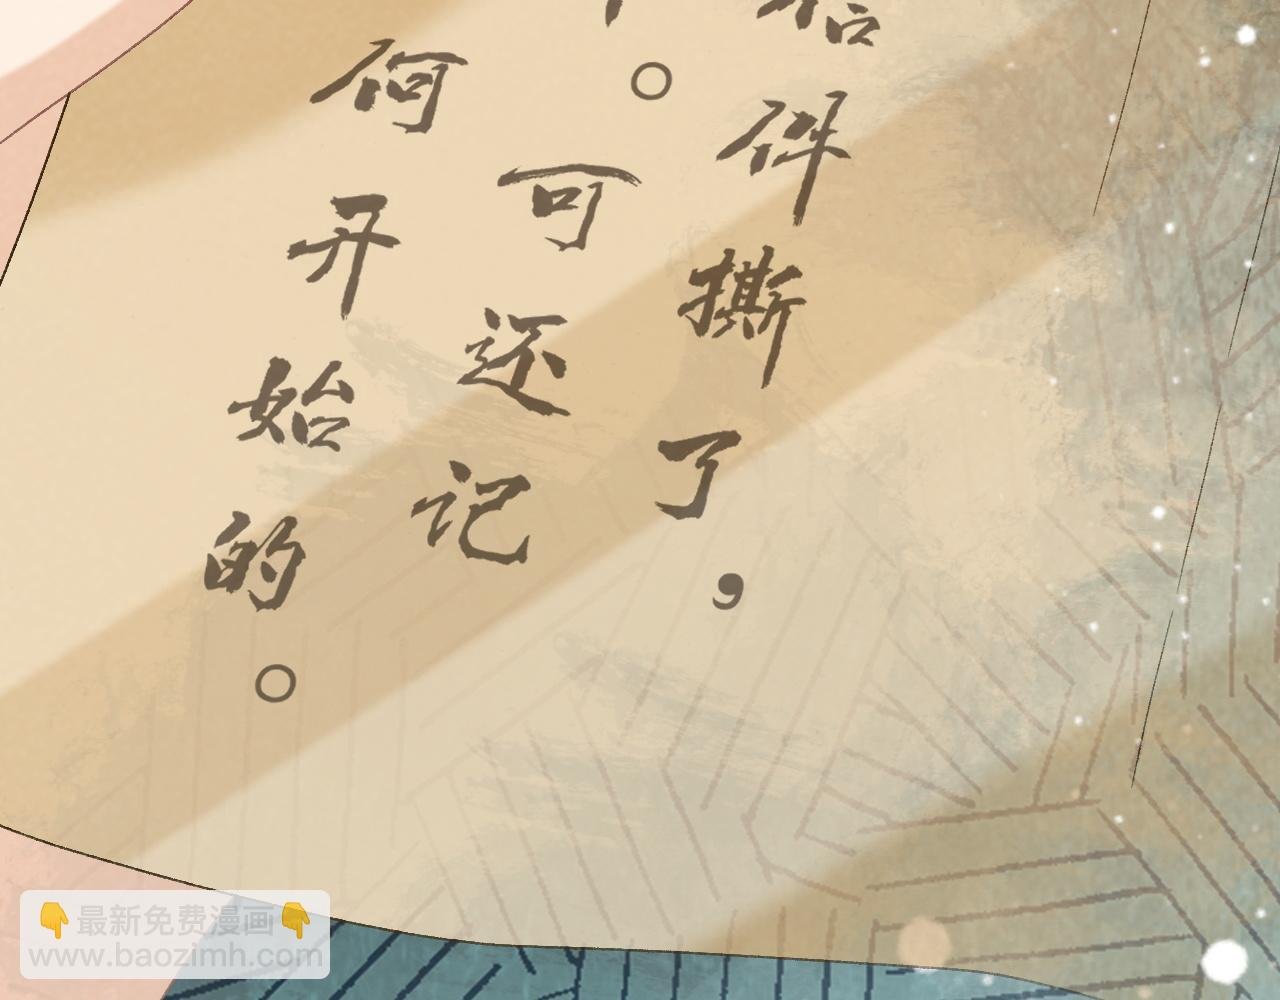 信件撕了，
。可还记
何开始的。
最新免费漫画
www.baozimh.com